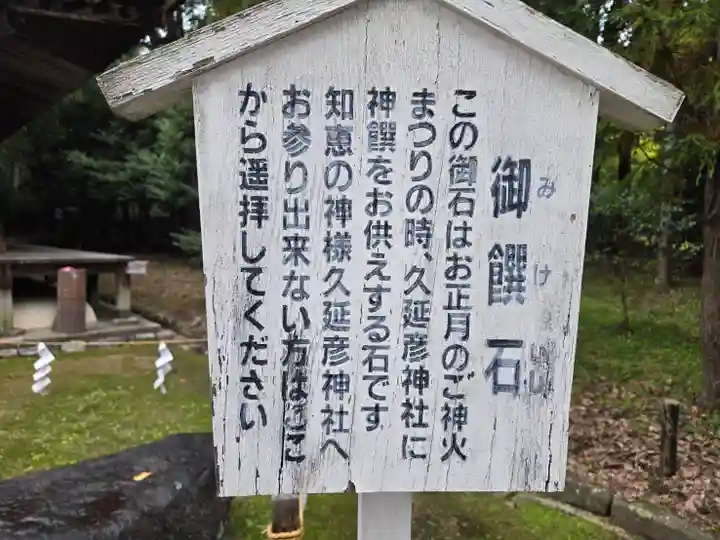 御饌石
みけ
この御石はお正月のご神火
まつりの時、久延彦神社に
神饌をお供えする石です
知恵の神様久延彦神社へ
お参り出来ない方はここ
から遥拝してください